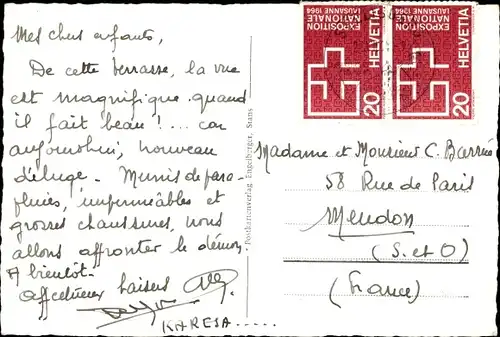 Mes chers enfants,
De cette terrasse, la vue
est magnifique quand
il fait beau! ... car
aujourd'hui, nouveau
déluge. Munis de para-
pluies, imperméables et
grosses chaussures, nous
allons affronter le démon.
A bientôt.
Affectueux baisers
KARESA.....
Postkartenverlag Engelberger, Stans
EXPOSITION
NATIONALE
LAUSANNE 1964
HELVETIA
20
EXPOSITION
NATIONALE
LAUSANNE 1964
HELVETIA
20
Madame et Monsieur C. Barrié
58 Rue de Paris
Meudon
(S. et O)
(France)